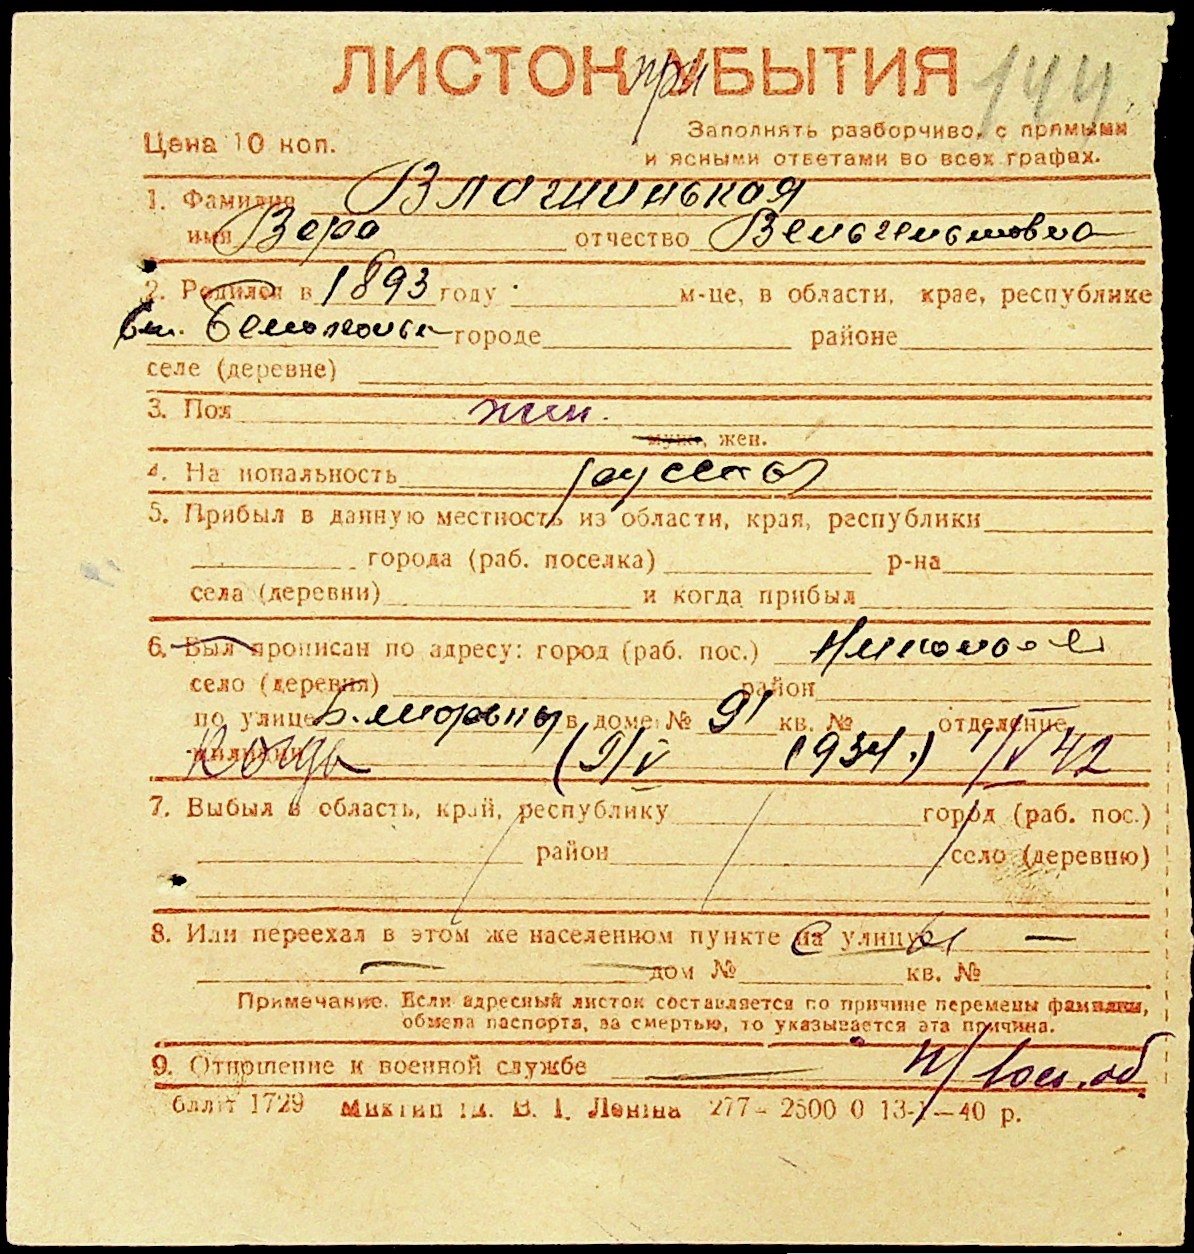 ЛИСТОК УБЫТИЯ при 144
Цена 10 коп. Заполнять разборчиво, с прямыми
и ясными ответами во всех графах.
1. Фамилия
имя Вера отчество Вельгельмовна
2. Родился в 1893 году м-це, в области, крае, республике
городе районе
селе (деревне)
3. Пол жен.
муж., жен.
4. Национальность русская
5. Прибыл в данную местность из области, края, республики
города (раб. поселка) р-на
села (деревни) и когда прибыл
6. Был прописан по адресу: город (раб. пос.) Николаев
село (деревня) район
по улице Б. Морская в доме № 91 кв. № отделение
милиции когда (9/V 1934.) 1/V 42
7. Выбыл в область, край, республику город (раб. пос.)
район село (деревню)
8. Или переехал в этом же населенном пункте на улицу
дом № кв. №
Примечание. Если адресный листок составляется по причине перемены фамилии,
обмена паспорта, за смертью, то указывается эта причина.
9. Отношение к военной службе н/воен.об
1729 ім. В. І. Леніна 277— 2500 0 13-І—40 р.